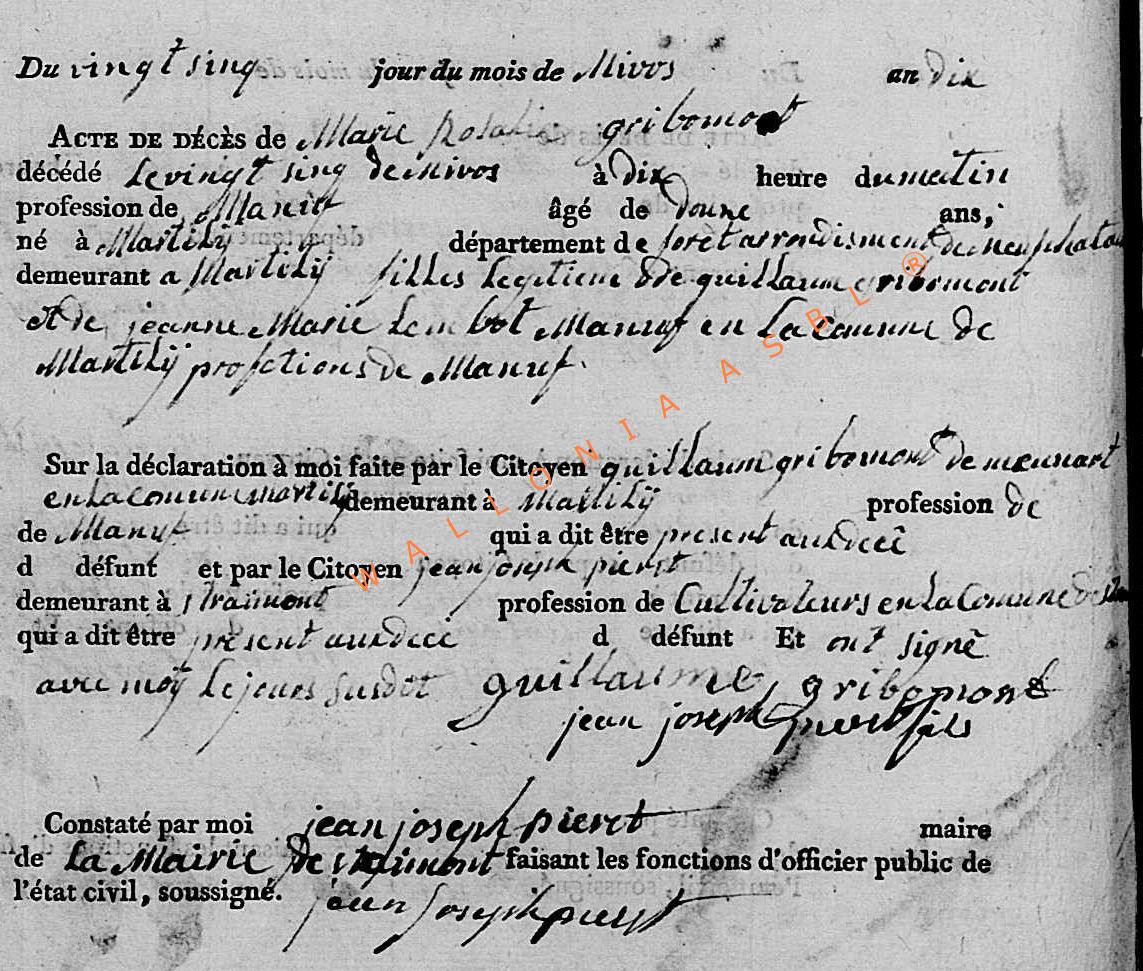 Du vingt sinq jour du mois de Nivos an dix
ACTE DE DÉCÈS de Marie Rosalie gribomont
décédé Le vingt sinq de Nivos à dix heure du matin
profession de Manuf âgé de doune ans,
né à Martilÿ département de forêt arrondisment de neufchatau
demeurant a Martilÿ filles Legitieme de guillaum gribomont
et de jeanne Marie Lembot Manuf en La comune de
Martilÿ profections de Manuf.
Sur la déclaration à moi faite par le Citoyen guillaum gribomont demeurart
en La comun martilÿ demeurant à Martilÿ profession de
de Manuf qui a dit être present au decé
d défunt et par le Citoyen jean joseph pieret
demeurant à straimont profession de Cultivateurs en La Comune de
qui a dit être present au decé d défunt Et ont signé
avec moÿ Le jours susdit guillaume gribomont
jean joseph pieret fils
Constaté par moi jean joseph pieret maire
de La Mairie De straimont faisant les fonctions d'officier public de
l'état civil, soussigné. jean joseph pieret
WALLONIA ASBL ®